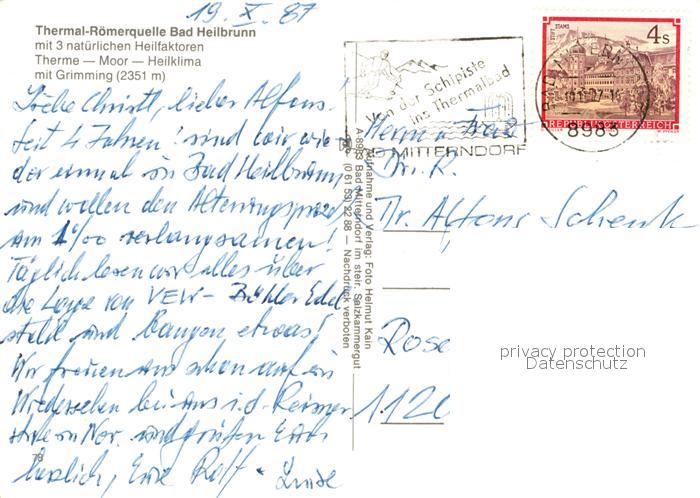 19. X. 87
Thermal-Römerquelle Bad Heilbrunn
mit 3 natürlichen Heilfaktoren
Therme — Moor — Heilklima
mit Grimming (2351 m)
Liebe Christl, lieber Alfons!
Seit 4 Jahren! sind wir wie-
der einmal in Bad Heilbrunn,
und wollen den Alterungsprozeß
um 1%oo verlangsamen!
Täglich lesen wir alles über
die Lage von VEW - Böhler Edel
stahl und bangen etwas!
Wir freuen uns schon auf ein
Wiedersehen bei uns i. d. Reisner-
im Nov. und grüßen Euch
herzlich, Eure Rolf + Luise
78
Aufnahme und Verlag: Foto Helmut Kain
A-8983 Bad Mitterndorf im steir. Salzkammergut
(0 61 53) 22 88 — Nachdruck verboten
Von der Schipiste
ins Thermalbad
BAD MITTERNDORF
8983
STIFT STAMS
4 S
REPUBLIK ÖSTERREICH
Herrn
Dr. Alfons Schenk
Rose
1120
privacy protection
Datenschutz